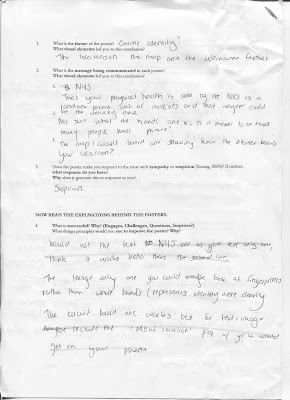 1. What is the theme of the poster? "Online identity"
What visual elements led you to this conclusion?
The locations on the map and the username format
2. What is the message being communicated in each poster?
What visual elements led you to this conclusion?
1. NHS
That your physical health is seen by the NHS as a
random person out of millions and that anyone could
be the unlucky one.
2. Not sure what the hands one is. Is it meant to be that
many people have phones?
3. The map/circuit board one showing how the internet knows
your location?
3. Does the poster make you respond to the issue with sympathy or suspicion
what response do you have?
Why does it generate this in response in you?
Suspicion.
NOW READ THE EXPLNATIONS BEHIND THE POSTERS.
4. What is successful? Why? (Engages, Challenges, Questions, Surprises?)
What design principles would you use to improve the poster? Why?
would use the text NHS one as your text only one,
think it works better than the second one
The image only one you could maybe look at fingerprints
rather than whole hands (represents identity more clearly
The circuit board one works best for text + image
include the 'allow location' pop up you would
get on your phone